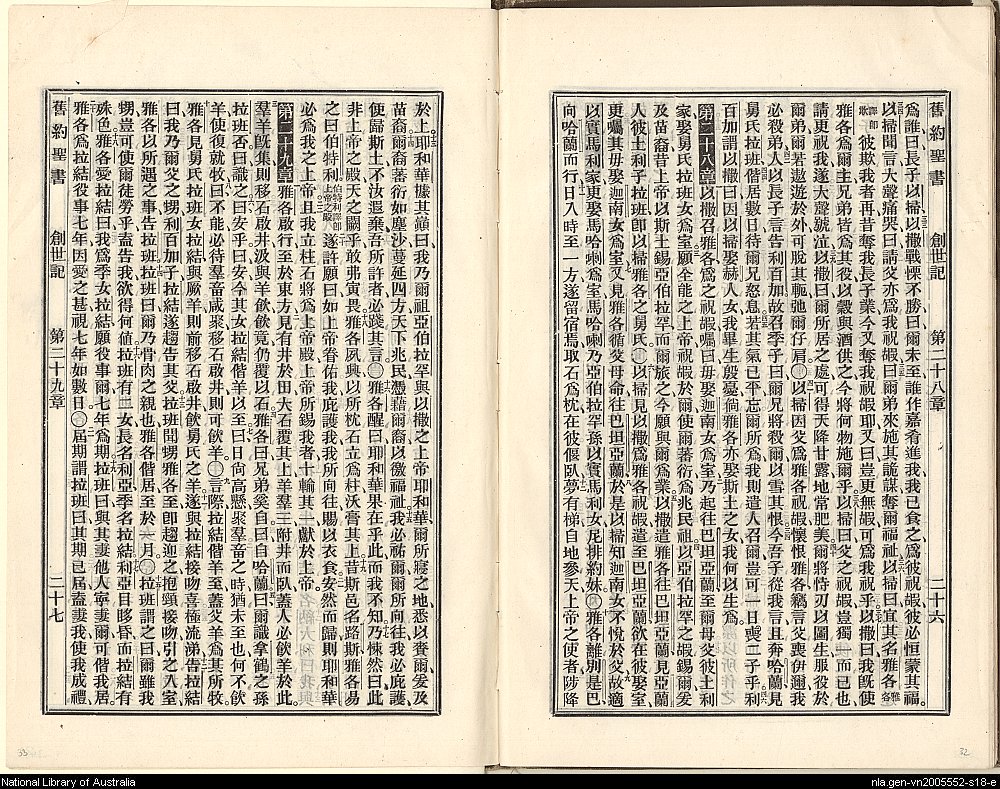 舊約聖書 創世記 第二十八章 二十六
爲誰曰長子以掃以撒戰慄不勝曰爾未至誰作嘉肴進我我已食之爲彼祝嘏彼必恒蒙其福
以掃聞言大聲痛哭曰請父亦爲我祝嘏曰爾弟來施其詭謀奪爾福祉以掃曰宜其名雅各
彼欺我者再昔奪我長子業今又奪我祝嘏耶又曰豈更無嘏可爲我祝乎以撒曰我旣使
雅各爲爾主兄弟皆爲其役以穀與酒供之今將何物施爾乎以掃曰父之祝嘏豈獨一而已也
請更祝我遂大聲號泣以撒曰爾所居之處可得天降甘露地當肥美爾將恃刃以圖生服役於
爾弟爾若遨遊於外可脫其軛弛爾仔肩以掃因父爲雅各祝嘏懷恨雅各竊言父喪伊邇我
必殺弟人以長子言告利百加故召季子曰爾兄將殺爾以雪其恨今吾子從我言且奔哈蘭見
舅氏拉班偕居數日待爾兄怒息若其氣已平忘爾所爲我則遣人召爾豈可一日喪二子乎利
百加謂以撒曰因以掃娶赫人女我畢生殷憂倘雅各亦娶斯土之女我何以生爲
第二十八章以撒召雅各爲之祝嘏囑曰毋娶迦南女爲室乃起往巴坦亞蘭至爾母父彼土利
家娶舅氏拉班女爲室願全能之上帝祝嘏於爾使爾蕃衍爲兆民祖以亞伯拉罕之嘏錫爾爰
及苗裔昔上帝以斯土錫亞伯拉罕而爾旅之今願與爾爲業以撒遣雅各往巴坦亞蘭見亞蘭
人彼土利子拉班卽以掃雅各之舅氏以掃見以撒爲雅各祝嘏遣至巴坦亞蘭欲在彼娶室
更囑其毋娶迦南女爲室又見雅各循父母命往巴坦亞蘭於是以掃知迦南女不悅於父故適
以實馬利家更娶馬哈喇爲室馬哈喇乃亞伯拉罕孫以實馬利女尼排約妹雅各離別是巴
向哈蘭而行日入時至一方遂留宿焉取石爲枕在彼偃臥夢有梯自地參天上帝之使者陟降
於上耶和華據其巔曰我乃爾祖亞伯拉罕與以撒之上帝耶和華爾所寢之地悉以賚爾爰及
苗裔爾裔蕃衍如塵沙蔓延四方天下兆民憑藉爾裔以徼福祉我必祐爾爾所向往我必庇護
使歸斯土不汝遐棄吾所許者必踐其言雅各醒曰耶和華果在乎此而我不知乃悚然曰此
非上帝之殿天之闥乎敢弗寅畏雅各夙興以所枕石立爲柱沃膏其上昔斯邑名路斯雅各易
之曰伯特利伯特利譯卽上帝之殿遂許願曰如上帝眷佑我庇護我我所向往賜以衣食安然而歸則耶和華
必爲我之上帝且我立柱石將爲上帝殿上帝所錫我者十輸其一獻於上帝
第二十九章雅各啟行至於東方見有井於田大石覆其上羊羣三附井而臥蓋人必飲羊於此
羣羊旣集則移石啟井汲與羊飲飲竟仍覆以石雅各曰兄弟奚自曰自哈蘭曰爾識拿鶴之孫
拉班否曰識之曰安乎曰安今其女拉結偕羊以至曰日尙高懸聚羣畜之時猶未至也何不飲
羊使復就牧曰不能必待羣畜咸聚移石啟井則可飲羊言際拉結偕羊至蓋父羊爲其所牧
雅各見舅氏拉班女拉結與厥羊則前移石啟井飲舅氏之羊遂與拉結接吻喜極流涕告拉結
曰我乃爾父之甥利百加子拉結遂趨告其父拉班聞甥雅各至卽趨迎之抱頸接吻引之入室
雅各以所遇之事告拉班拉班曰爾乃骨肉之親也雅各偕居至於一月拉班謂之曰爾雖我
甥豈可使爾徒勞乎盍告我欲得何値拉班有二女長名利亞季名拉結利亞目眵昏而拉結有
殊色雅各愛拉結曰我爲季女拉結願役事爾七年爲期拉班曰與其妻他人寧妻爾可偕我居
雅各爲拉結役事七年因愛之甚視七年如數日屆期謂拉班曰其期已屆盍妻我使我成禮
舊約聖書 創世記 第二十九章 二十七
33
32
National Library of Australia
nla.gen-vn2005552-s18-e